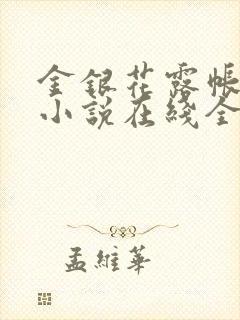 金銀花露帳
小說在綫全
孟維華